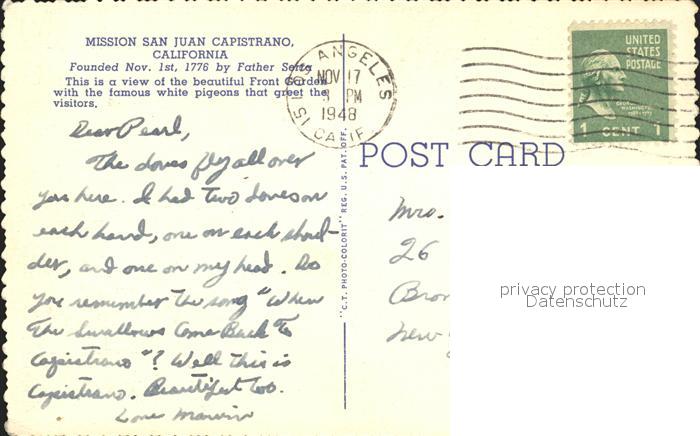 MISSION SAN JUAN CAPISTRANO,
CALIFORNIA
Founded Nov. 1st, 1776 by Father Serra
This is a view of the beautiful Front Garden
with the famous white pigeons that greet the
visitors.
LOS ANGELES
NOV 17
3 PM
1948
CALIF.
UNITED
STATES
POSTAGE
GEORGE
WASHINGTON
1 CENT 1
POST CARD
"C.T. PHOTO-COLORIT" REG. U.S. PAT. OFF.
Dear Pearl,
The doves fly all over
you here. I had two doves on
each hand, one on each shoul-
der, and one on my head. Do
you remember the song "When
The Swallows Come Back To
Capistrano"? Well this is
Capistrano. Beautiful too.
Love Marvin
Mrs.
26
Bron
New
privacy protection
Datenschutz